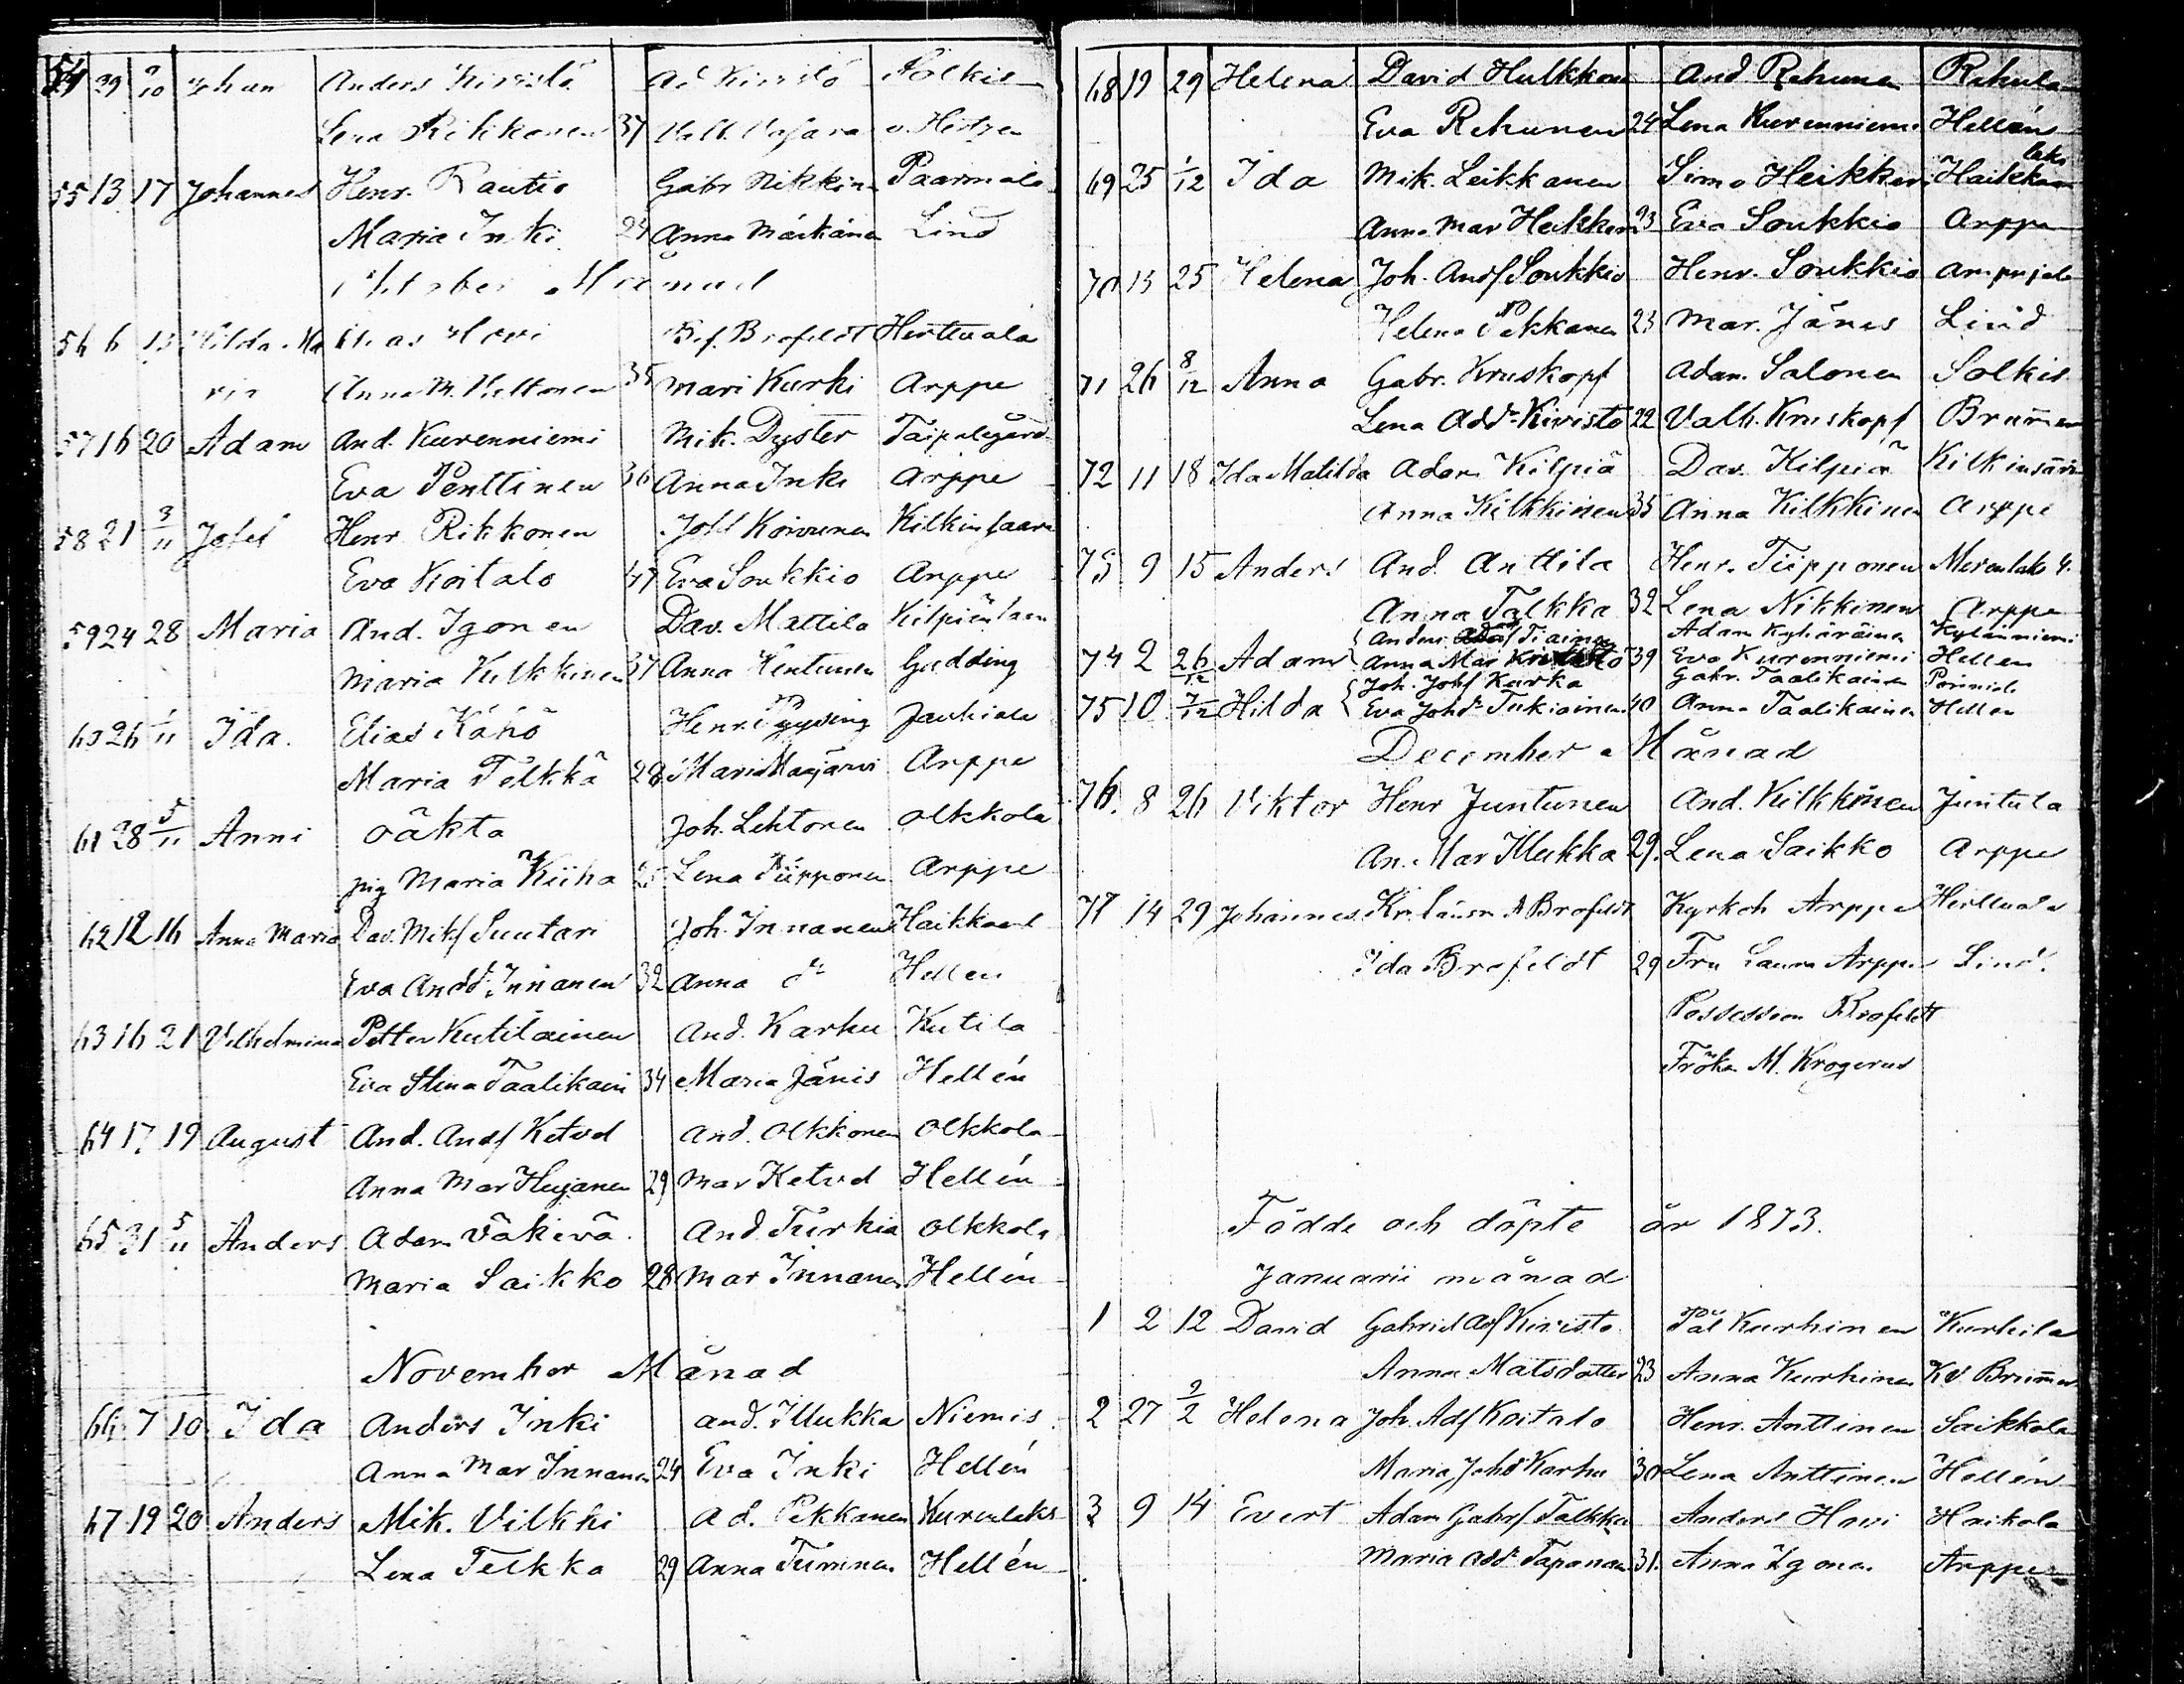 54 29 9/10 Johan Anders Kivistö Ad Kivistö Solkis
Lena Rikkonen 37 v. Hertzen
55 13 17 Johannes Henr. Rautio Gabr Nikkin Paarmala
Maria Inki 24 Anna Märkänen Lind
Oktober Månad
56 6 13 Hilda Ma Elias Hovi Brofeldt Hertuala
ria Anna M. Peltonen 35 Mari Kurki Arppe
57 16 20 Adam And. Kurenniemi Mik. Dyster Taipalegård
Eva Penttinen 36 Anna Inki Arppe
58 21 3/11 Josef Henr Rikkonen Josef Koivunen Kilkinsaari
Eva Koitalo 47 Eva Soukkio Arppe
59 24 28 Maria And. Igonen Dav. Mattila
Maria Kilkkinen 37 Anna Kentunen Gadding
60 26 1/11 Ida. Elias Kähö Henr.
Maria Telkkä 28 Maria Arppe
61 28 5/11 Anni oäkta Joh. Lehtonen Olkkola
pig Maria Kiiha 25 Lena Tiipponen Arppe
62 12 16 Anna Maria Dav. Mikf Suutari Joh. Innanen Haikkaanl
Eva Andd. Innanen 32 Anna dr Hellen
63 16 21 Vilhelmina Petter Kutilainen And. Karhu Kutila
Eva Stina Taalikain 34 Maria Jänis Hellén
64 17 19 August And. Andf Ketvel And. Olkkonen Olkkola
Anna Mar Hujanen 29 Mar Ketvel Hellén
65 31 5/11 Anders Adam Väkivä And. Turkia Olkkola
Maria Saikko 28 Mar Innanen Hellén
November Månad
66 7 10 Ida Anders Inki And. Illukka Niemis
Anna Mar Innanen 24 Eva Inki Hellén
67 19 20 Anders Mik. Vilkki Ad. Pekkanen Kurenlaks
Lena Telkka 29 Anna Timonen Hellén
68 19 29 Helena David Hulkkon And Rehunen Rahula
Eva Rehunen 24 Lena Kurenniemi Hellén
69 25 1/12 Ida Mik. Leikkanen Simo Heikken Haikkaan
laks
Anna Mar Heikken 23 Eva Soukkio Arppe
70 13 25 Helena Joh. Andf Soukkio Henr. Soukkio Ampujala
Helena Pekkanen 23 Mar. Jänes Lind
71 26 8/12 Anna Gabr. Kruskopf Adam. Salonen Solkis
Lena Addr Kivistö 22 Valb. Kruskopf Brummer
72 11 18 Ida Matilda Adam Kilpiä Dav. Kilpiä Kilkinsaari
Anna Kilkkinen 35 Anna Kilkkinen Arppe
73 9 15 Anders And. Anttila Henr. Tiipponen Merenlaks 4.
Anna Talkka 32 Lena Nikkinen Arppe
Anders Tiainen Adam Kyhäräinen Kyläniemi
74 2 26/12 Adam Anna Mar 39 Eva Kurenniemi Hellen
Joh. Johf Karka Gabr. Taalikainen
75 10 7/12 Hilda Eva Johdr Tukiainen 40 Anna Taalikainen Hellen
December Månad
76. 8 26 Viktor Henr Juntunen And. Kilkkinen Juntula
An. Mar Illukka 29. Lena Saikko Arppe
77 14 29 Johannes Kr.länsm A Brofeldt Kyrkoh Arppe Hertuala
Ida Brofeldt 29 Fru Laura Arppe Lind.
Possession Brofeldt
Fröken M. Krogerus
Födde och döpte år 1873.
Januarii månad
1 2 12 David Gabriel Adf Kivistö Pål Kurhinen Kurhila
Anna Matsdotter 23 Anna Kurhinen Kd Brummer
2 27 2/2 Helena Joh. Adf Koitalo Henr. Anttinen Saikkola
Maria Johdr Karhu 30 Lena Anttinen Hellén
3 9 14 Evert Adam Gabrf Talkka Anders Hovi Haikola
Maria Addr Taponen 31. Anna Igonen Arppe